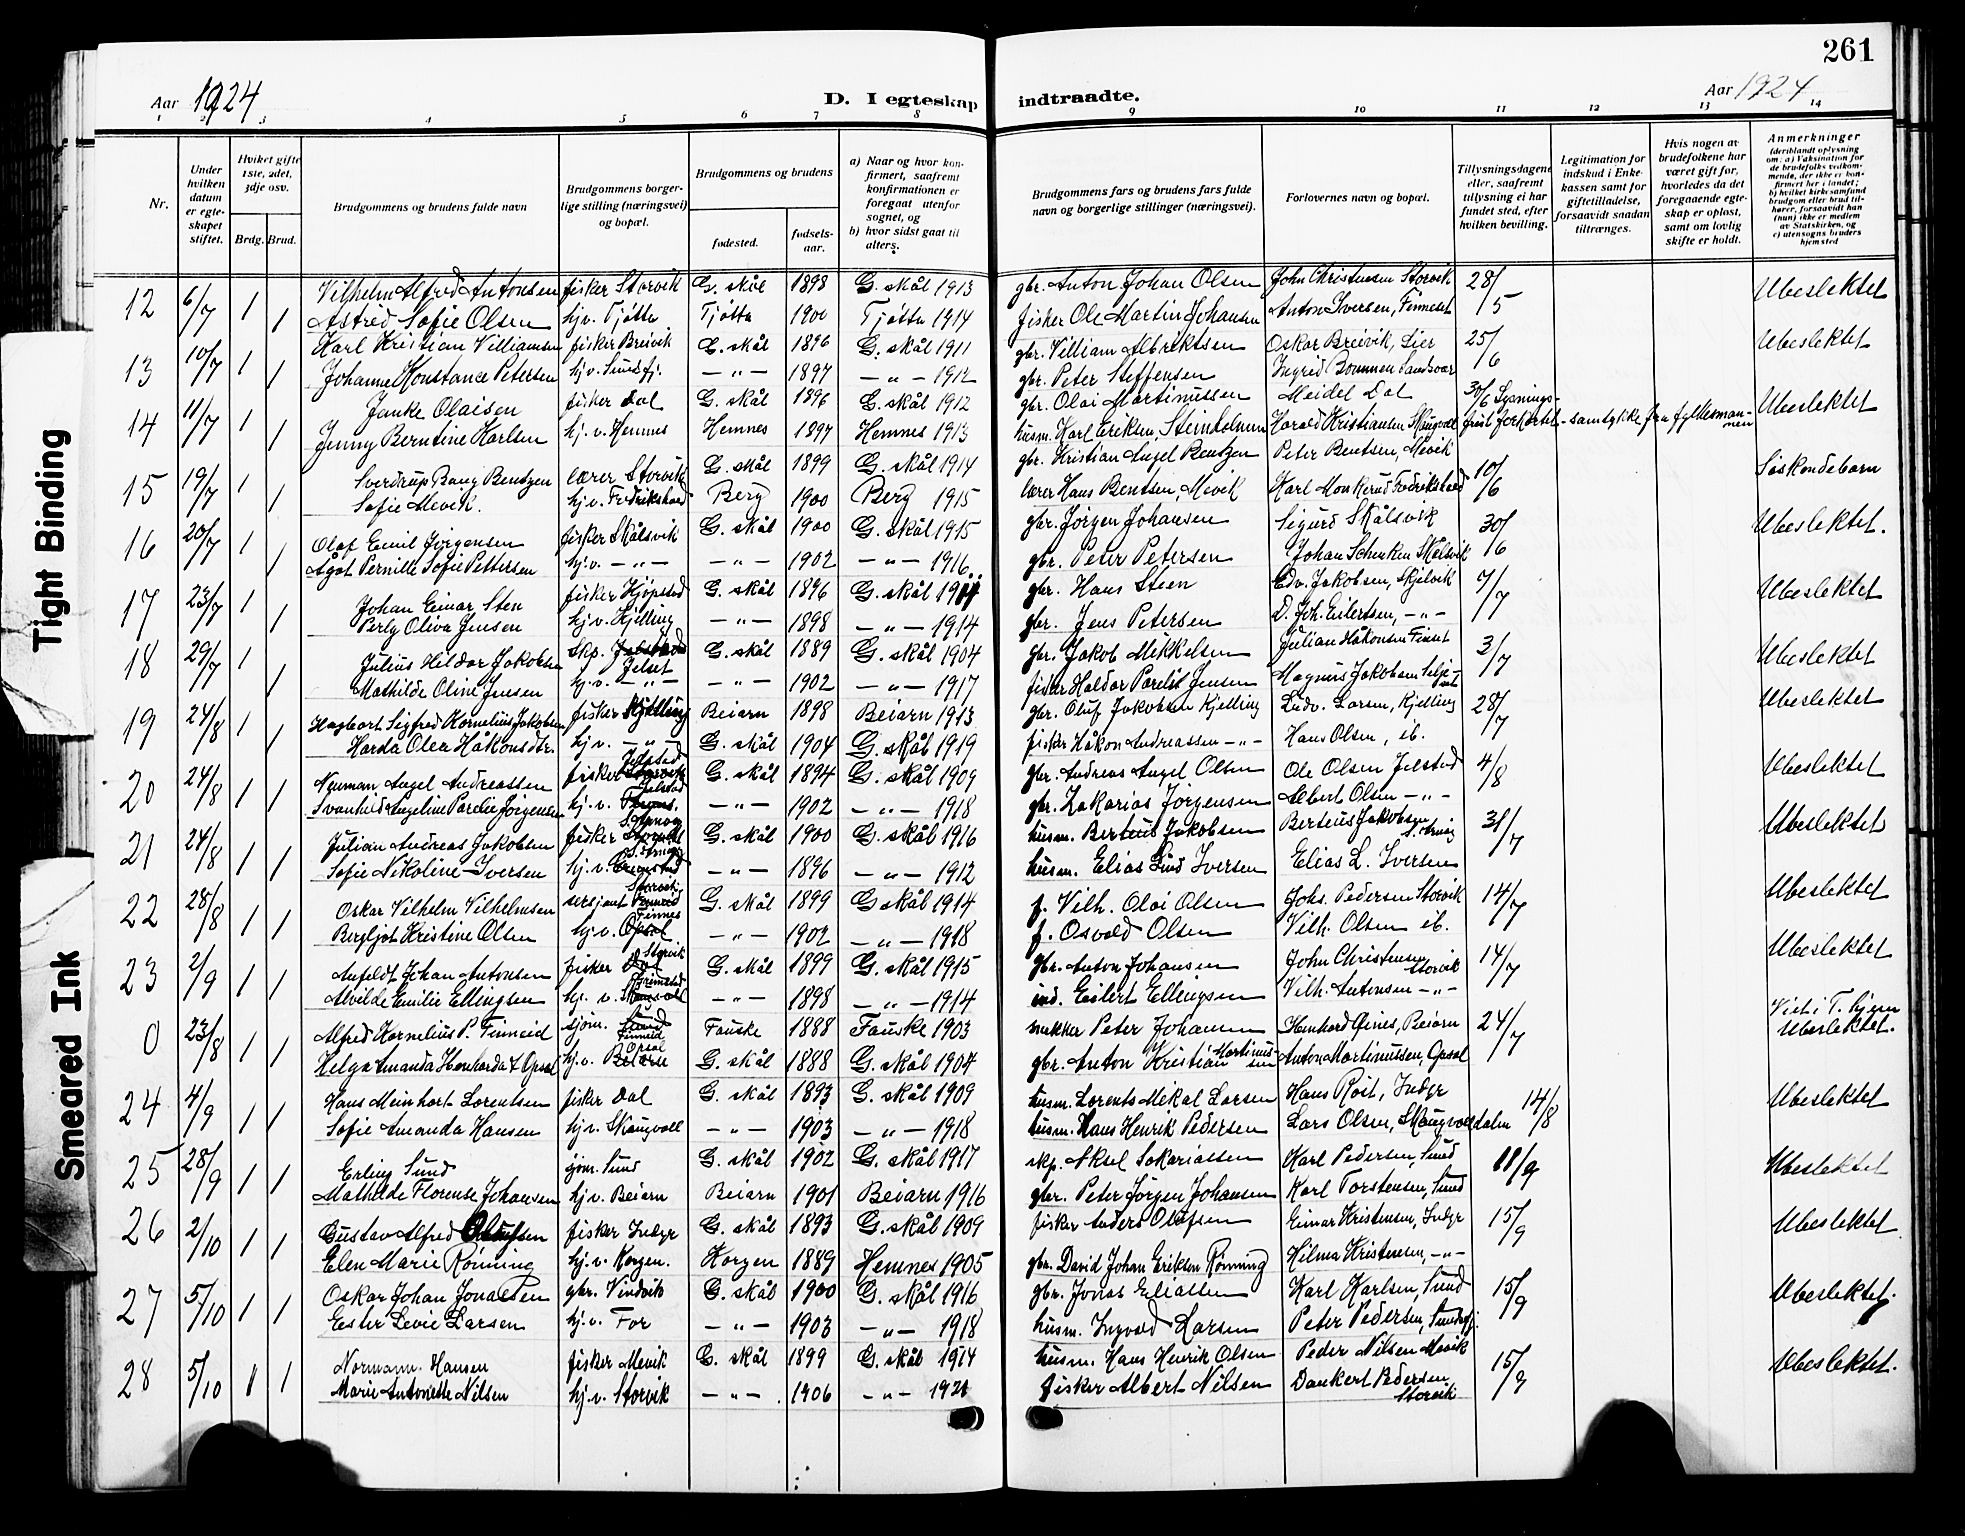 261
Aar 1924
D. I egteskap indtraadte.
Aar 1924
1 2 3 4 5 6 7 8 9 10 11 12 13 14
Nr.
Under hvilken datum er egteskapet stiftet.
Hvilket gifte 1ste, 2det, 3dje osv.
Brdg. Brud.
Brudgommens og brudens fulde navn
Brudgommens borgerlige stilling (næringsvei) og bopæl.
Brudgommens og brudens
fødested.
fødselsaar.
a) Naar og hvor konfirmert, saafremt konfirmationen er foregaat utenfor sognet, og
b) hvor sidst gaat til alters.
Brudgommens fars og brudens fars fulde navn og borgerlige stillinger (næringsvei).
Forlovernes navn og bopæl.
Tillysningsdagene eller, saafremt tillysning ei har fundet sted, efter hvilken bevilling.
Legitimation for indskud i Enkekassen samt for giftetilladelse, forsaavidt saadan tiltrænges.
Hvis nogen av brudefolkene har været gift før, hvorledes da det foregaaende egteskap er opløst, samt om lovlig skifte er holdt.
Anmerkninger
(deriblandt oplysning om: a) Vaksination for de brudefolks vedkommende, der ikke er konfirmert her i landet; b) hvilket kirkesamfund brudgom eller brud tilhører, forsaavidt han (hun) ikke er medlem av Statskirken, og c) utensogns bruders hjemsted
12 6/7 1 Vilhelm Alfred Antonsen fisker Storvik G. skål 1898 G. skål 1913 gbr. Anton Johan Olsen John Christensen Storvik 28/5 Ubeslektet
1 Astrid Sofie Olsen hj.v. Tjøtta Tjøtta 1900 Tjøtta 1914 fisker Ole Martin Johansen Anton Iversen, Finneset
13 10/7 1 Karl Kristian Villiamsen fisker Breivik G. skål 1896 G. skål 1911 gbr. Villiam Albriktsen Oskar Breivik, Lier 25/6 Ubeslektet
1 Johanne Konstance Petersen hj.v. Sundsfj. — " — 1897 — " — 1912 gbr. Peter Steffensen Ingrid Sandsvær
14 11/7 1 Janke Olaisen fisker Dal G. skål 1896 G. skål 1912 gbr. Olai Martinussen Meidel Dal 30/6 Lysningsfrist forkortet - samtykke fra fylkesmannen Ubeslektet
1 Jenny Berntine Karlsen hj.v. Hemnes Hemnes 1897 Hemnes 1913 husm. Karl Eriksen, Steinholmen Harald Kristiansen Skaugvoll
15 19/7 1 Sverdrup Bang Bentzen lærer Storvik G. skål 1899 G. skål 1914 gbr. Kristian Angel Bentzen Peter Bentsen, Mevik 10/6 Søskendebarn
1 Sofie Mevik. hj.v. Fredrikshald Berg 1900 Berg 1915 lærer Hans Bentsen, Mevik Karl Monkerud Fredrikshald
16 20/7 1 Olaf Emil Jørgensen fisker Skålsvik G. skål 1900 G. skål 1915 gbr. Jørgen Johansen Sigurd Skålsvik 30/6 Ubeslektet.
1 Ågot Pernille Sofie Pettersen hj.v. — " — — " — 1902 — " — 1916 gbr. Peter Petersen Johan Schenken Skålsvik
17 23/7 1 Johan Einar Sten fisker Kjøpstad G. skål 1896 G. skål gbr. Hans Steen Edv. Jakobsen, Skjelvik 7/7 Ubeslektet
1 Perly Oliva Jensen hj.v. Kjelling — " — 1898 — " — 1914 gbr. Jens Petersen D. Joh. Eilertsen, — " —
18 29/7 1 Julius Hildor Jakobsen skp. Jelset G. skål 1889 G. skål 1904 gbr. Jakob Mikkelsen Julian Håkonsen Finset 3/7 Ubeslektet
1 Mathilde Oline Jensen hj.v. — " — — " — 1902 — " — 1917 fisker Haldor Parelis Jensen Magnus Jakobsen
19 24/8 1 Hagbart Sigfred Kornelius Jakobsen fisker Kjelling Beiarn 1898 Beiarn 1913 gbr. Oluf Jakobsen Kjelling Ludv. Larsen, Kjelling 28/7 Ubeslektet
1 Harda Olea Håkonsdtr. hj.v. — " — G. skål 1904 G. skål 1919 fisker Håkon Andreassen — " — Hans Olsen, ib.
20 24/8 1 Neumann Angel Andreassen fisker Jelstad G. skål 1894 G. skål 1909 gbr. Andreas Angel Olsen Ole Olsen Jelstad 4/8 Ubeslektet
1 Svanhid Angeline Pareli Jørgensen hj.v. Jelstad — " — 1902 — " — 1918 gbr. Zakarias Jørgensen Albert Olsen — " —
21 24/8 1 Julian Andreas Jakobsen fisker G. skål 1900 G. skål 1916 husm. Berteus Jakobsen Berteus Jakobsen 31/7 Ubeslektet
1 Sofie Nikoline Iversen hj.v. — " — 1896 — " — 1912 husm. Elias Lind Iversen Elias L. Iversen
22 28/8 1 Oskar Vilhelm Vilhelmsen sersjant Storvik G. skål 1899 G. skål 1914 f. Vilh. Olai Olsen Johs. Pedersen Storvik 14/7 Ubeslektet
1 Bergljot Kristine Olsen hj.v. Finnes — " — 1902 — " — 1918 f. Osvald Olsen Vilh. Olsen ib.
23 2/9 1 Anfeldt Johan Antonsen fisker Storvik G. skål 1899 G. skål 1915 gbr. Anton Johansen John Christensen Storvik 14/7 Ubeslektet
1 Alvilde Emilie Ellingsen hj.v. — " — 1898 — " — 1914 ind. Eilert Ellingsen Vilh. Antonsen — " —
0 23/8 1 Alfred Kornelius P. Finneid sjøm. Finneid Fauske 1888 Fauske 1903 snekker Peter Johansen Henhard Øines, Beiarn 24/7 Viet i T. hjem Ubeslektet.
1 Helga Amanda Henharda A Opsal hj.v. Opsal G. skål 1888 G. skål 1904 gbr. Anton Kristian Martinussen Anton Martinussen, Opsal
24 4/9 1 Hans Meinhart Lorentsen fisker Dal G. skål 1893 G. skål 1909 husm. Lorents Mikal Larsen Hans Røst, Indyr 14/8 Ubeslektet
1 Sofie Amanda Hansen hj.v. Skaugvoll — " — 1903 — " — 1918 husm. Hans Henrik Pedersen Lars Olsen, Skaugvolldalen
25 28/9 1 Erling Sund sjøm. Sund G. skål 1902 G. skål 1917 skp. Aksel Sakariassen Karl Pedersen, Sund 11/9 Ubeslektet
1 Mathilde Florense Johansen hj.v. Beiarn Beiarn 1901 Beiarn 1916 gbr. Peter Jørgen Johansen Karl Torstensen, Sund
26 2/10 1 Gustav Alfred Olufsen fisker Indyr G. skål 1893 G. skål 1909 fisker Anders Olufsen Einar Kristensen, Indyr 15/9 Ubeslektet
1 Elen Marie Rønning hj.v. Korgen. Korgen 1889 Hemnes 1905 gbr. David Johan Eriksen Rønning Hilma Kristensen, — " —
27 5/10 1 Oskar Johan Jonassen gbr. Vindvik G. skål 1900 G. skål 1916 gbr. Jonas Eliassen Karl Karlsen, Sund 15/9 Ubeslektet.
1 Ester Levie Larsen hj.v. Før — " — 1903 — " — 1918 husm. Ingvald Larsen Peter Pedersen, Sundsfj.
28 5/10 1 Normann Hansen fisker Mevik G. skål 1899 G. skål 1914 husm. Hans Henrik Olsen Peder Nilsen Mevik 15/9 Ubeslektet.
1 Marie Antonette Nilsen hj.v. Storvik — " — 1906 — " — 1921 fisker Albert Nilsen Dankert Pedersen Storvik
Tight Binding
Smeared Ink